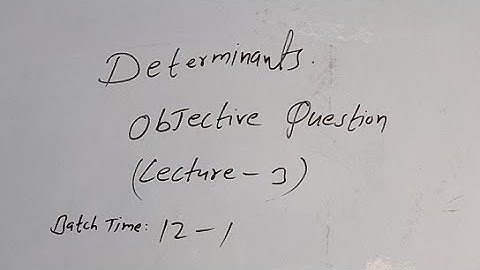 Determinants.
Objective Question
(Lecture - 3)
Batch Time: 12 - 1